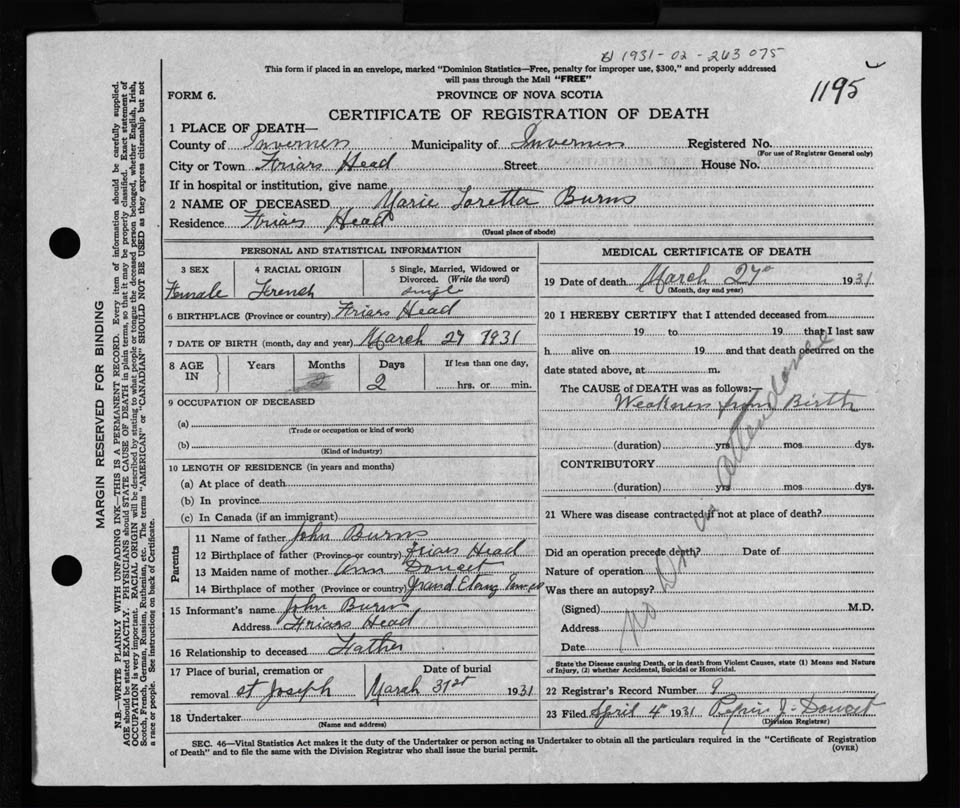 1931-02-243075
This form if placed in an envelope, marked "Dominion Statistics—Free, penalty for improper use, $300," and properly addressed
will pass through the Mail "FREE"
1195
FORM 6.
PROVINCE OF NOVA SCOTIA
CERTIFICATE OF REGISTRATION OF DEATH
1 PLACE OF DEATH—
County of Inverness Municipality of Inverness Registered No.
(For use of Registrar General only)
City or Town Friars Head Street House No.
If in hospital or institution, give name
2 NAME OF DECEASED Marie Loretta Burns
Residence Friars Head
(Usual place of abode)
PERSONAL AND STATISTICAL INFORMATION
3 SEX 4 RACIAL ORIGIN 5 Single, Married, Widowed or
Divorced. (Write the word)
Female French single
6 BIRTHPLACE (Province or country) Friars Head
7 DATE OF BIRTH (month, day and year) March 27 1931
8 AGE IN Years Months Days If less than one day,
2 2 hrs. or min.
9 OCCUPATION OF DECEASED
(a)
(Trade or occupation or kind of work)
(b)
(Kind of industry)
10 LENGTH OF RESIDENCE (in years and months)
(a) At place of death
(b) In province
(c) In Canada (if an immigrant)
Parents
11 Name of father John Burns
12 Birthplace of father (Province or country) Friars Head
13 Maiden name of mother Ann Doucet
14 Birthplace of mother (Province or country) Grand Etang
15 Informant's name John Burns
Address Friars Head
16 Relationship to deceased Father
17 Place of burial, cremation or Date of burial
removal St Joseph March 31st 1931
18 Undertaker
(Name and address)
MEDICAL CERTIFICATE OF DEATH
19 Date of death March 1931
(Month, day and year)
20 I HEREBY CERTIFY that I attended deceased from
19 to 19 that I last saw
h alive on 19 and that death occurred on the
date stated above, at m.
The CAUSE of DEATH was as follows:—
Weakness from Birth
(a)
(duration) yrs mos dys.
CONTRIBUTORY
(duration) yrs mos dys.
21 Where was disease contracted if not at place of death?
Did an operation precede death? Date of
Nature of operation
Was there an autopsy?
(Signed) M.D.
Address
Date
No Dr in attendance
State the Disease causing Death, or in death from Violent Causes, state (1) Means and Nature
of Injury, (2) whether Accidental, Suicidal or Homicidal.
22 Registrar's Record Number 9
23 Filed April 4 1931 J. Doucet
(Division Registrar)
SEC. 46—Vital Statistics Act makes it the duty of the Undertaker or person acting as Undertaker to obtain all the particulars required in the "Certificate of Registration
of Death" and to file the same with the Division Registrar who shall issue the burial permit.
(OVER)
MARGIN RESERVED FOR BINDING
N.B.—WRITE PLAINLY WITH UNFADING INK—THIS IS A PERMANENT RECORD. Every item of information should be carefully supplied.
AGE should be stated EXACTLY. PHYSICIANS should STATE CAUSE OF DEATH in plain terms, so that it may be properly classified. Exact statement of
OCCUPATION is very important. RACIAL ORIGIN will be described by stating to what people or tongue the deceased person belonged, whether English, Irish,
Scotch, French, German, Russian, Ruthenian, etc. The terms "AMERICAN" or "CANADIAN" SHOULD NOT BE USED as they express citizenship but not
a race or people. See instructions on back of Certificate.